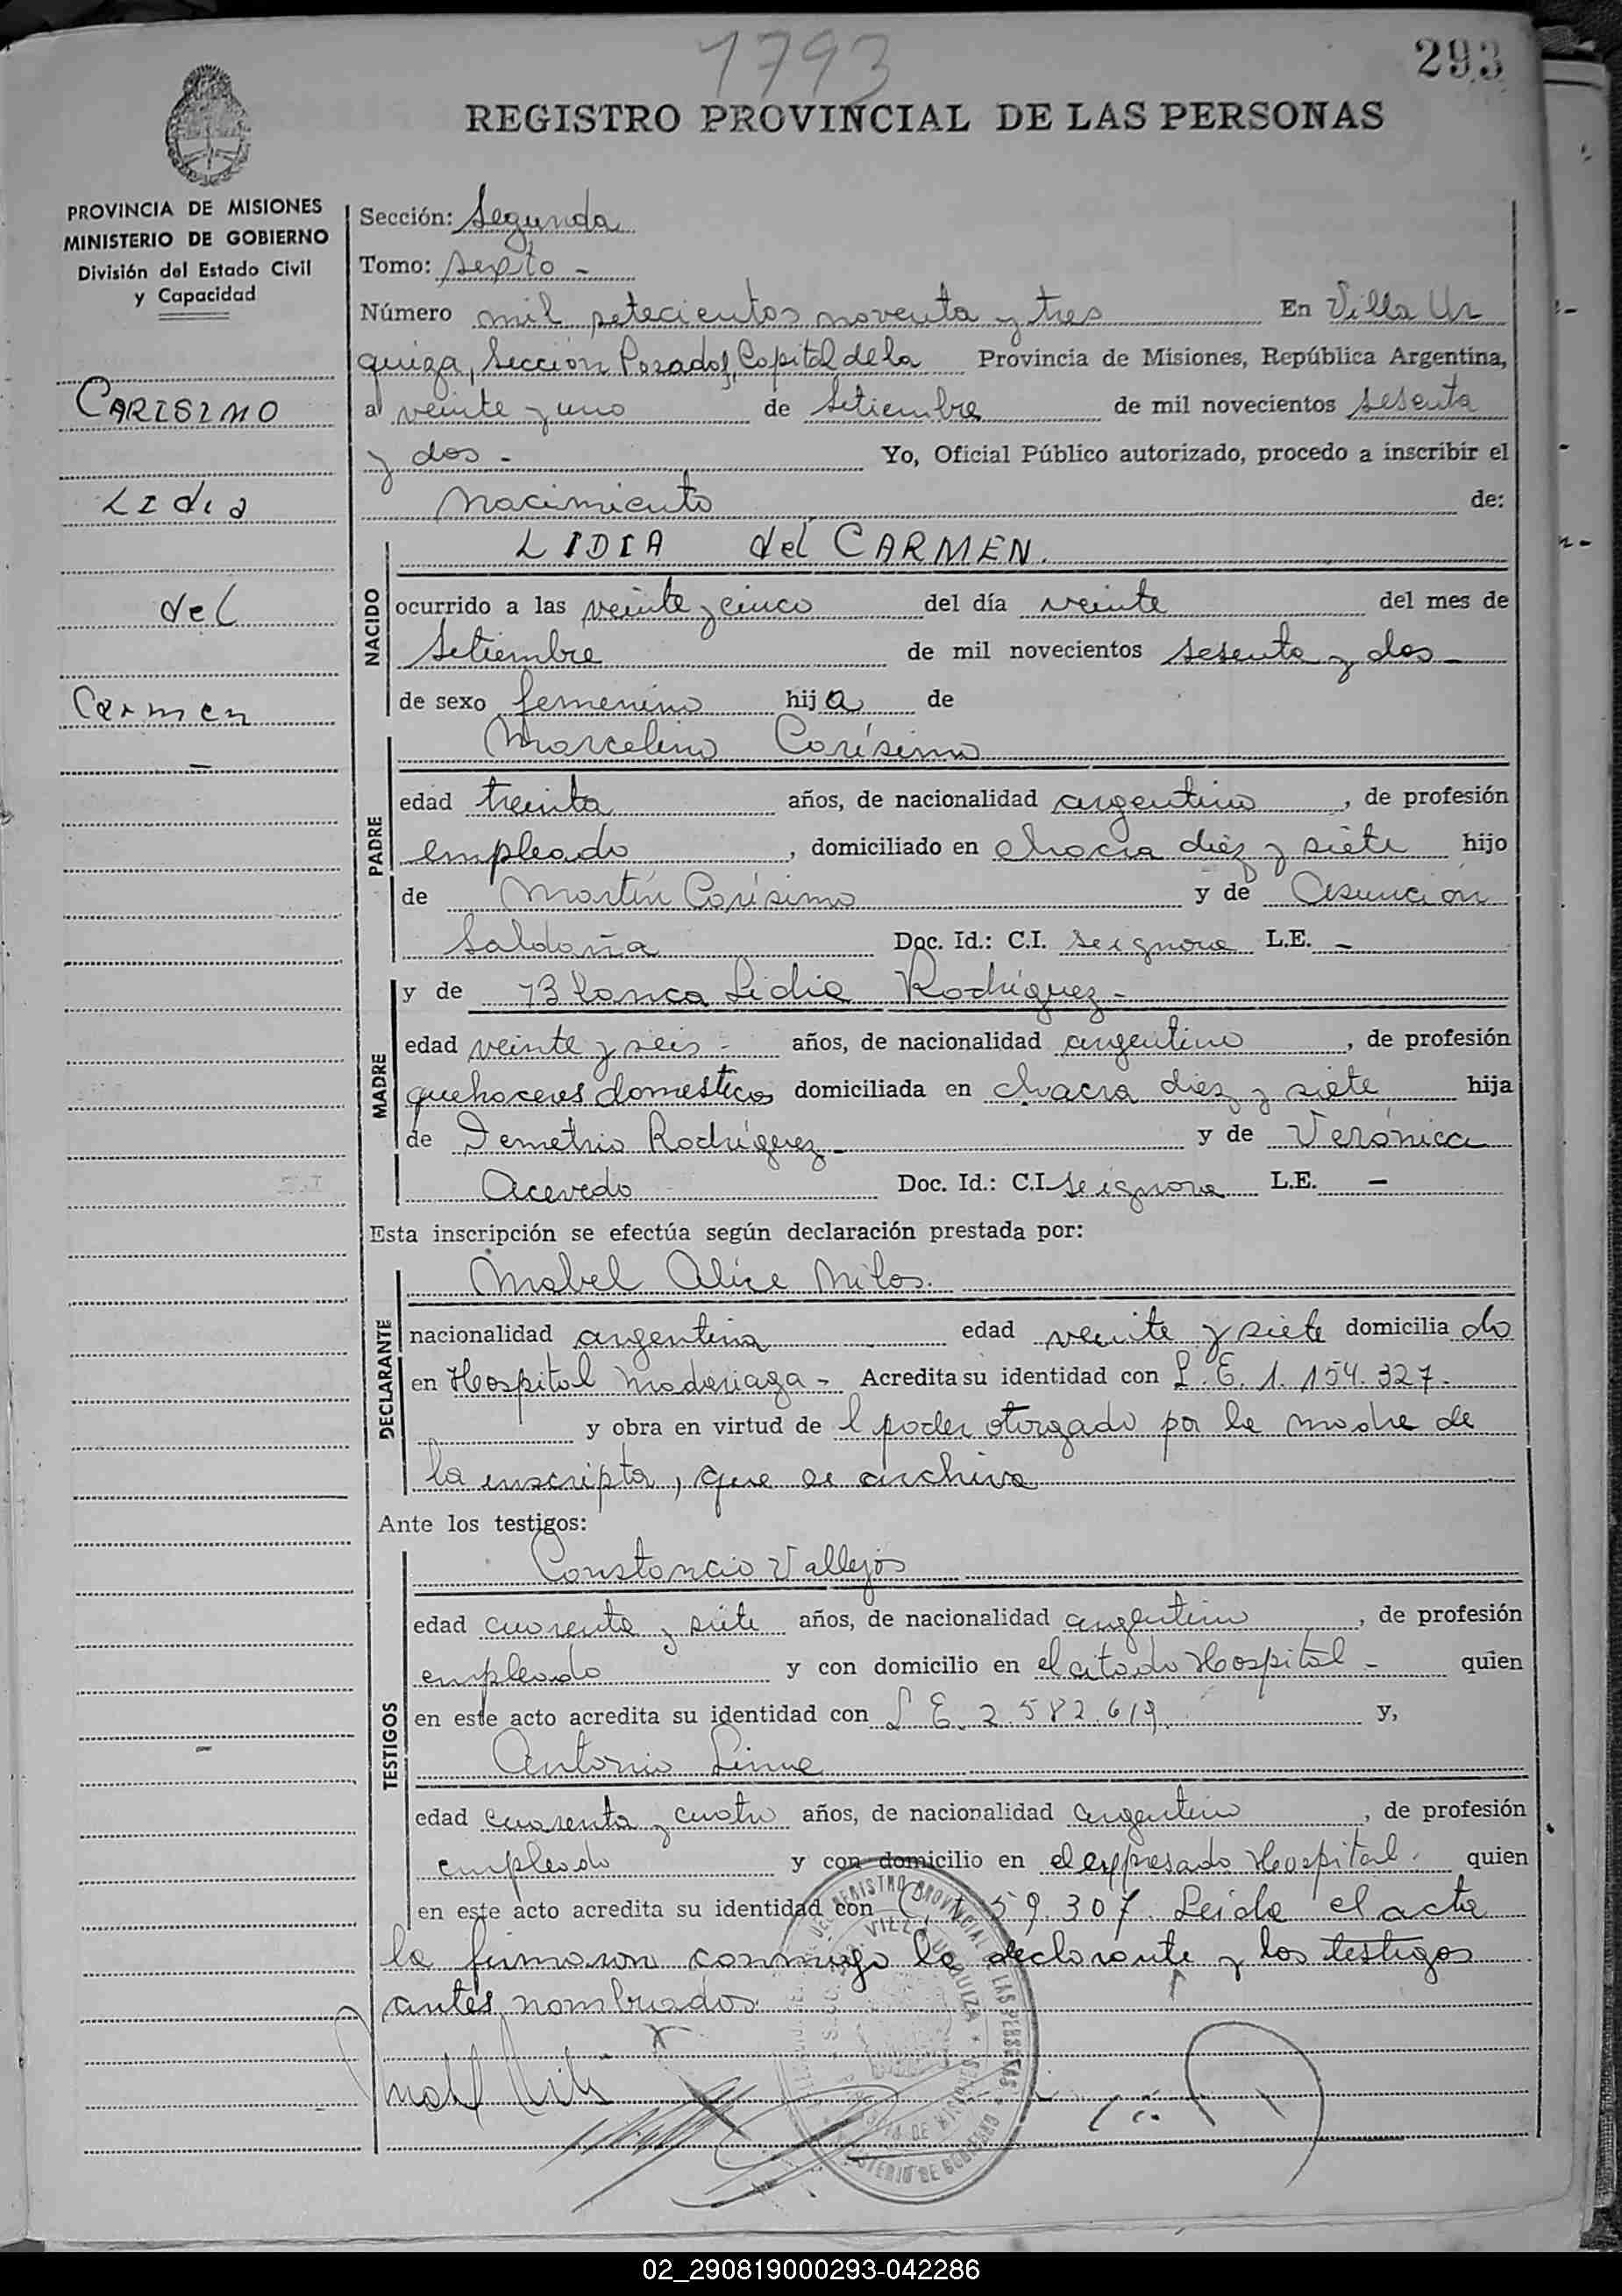 1793
293
REGISTRO PROVINCIAL DE LAS PERSONAS
PROVINCIA DE MISIONES
MINISTERIO DE GOBIERNO
División del Estado Civil
y Capacidad
CARISIMO
LIdia
del
Carmen
Sección: Segunda
Tomo: sexto -
Número mil setecientos noventa y tres En Villa Ur
quiza, Sección Posadas, Capital de la Provincia de Misiones, República Argentina,
a veinte y uno de Setiembre de mil novecientos sesenta
y dos - Yo, Oficial Público autorizado, procedo a inscribir el
nacimiento de:
NACIDO
LIDIA del CARMEN.
ocurrido a las veinte y cinco del día veinte del mes de
Setiembre de mil novecientos sesenta y dos -
de sexo femenino hija de
PADRE
Marcelino Carísimo
edad treinta años, de nacionalidad argentino, de profesión
empleado, domiciliado en chacra diez y siete hijo
de Martín Carísimo y de Asunción
Saldaña Doc. Id.: C.I. se ignora L.E. -
MADRE
y de Blanca Lidia Rodríguez -
edad veinte y seis - años, de nacionalidad argentina, de profesión
quehaceres domesticos domiciliada en chacra diez y siete hija
de Demetrio Rodríguez - y de Verónica
Acevedo Doc. Id.: C.I. se ignora L.E. -
Esta inscripción se efectúa según declaración prestada por:
DECLARANTE
Mabel Alice Milos.
nacionalidad argentina edad veinte y siete domiciliado
en Hospital Madariaga - Acredita su identidad con L.E. 1.154.327.
y obra en virtud del poder otorgado por la madre de
la inscripta, que se archiva
Ante los testigos:
TESTIGOS
Constancio Vallejos
edad cuarenta y siete años, de nacionalidad argentino, de profesión
empleado y con domicilio en el citado Hospital - quien
en este acto acredita su identidad con L E. 2.582.619. y,
Antonio
edad cuarenta y cuatro años, de nacionalidad argentino, de profesión
empleado y con domicilio en el expresado Hospital. quien
en este acto acredita su identidad con 59.307. Leida el acta
la firmaron conmigo la declarante y los testigos
antes nombrados.
02_290819000293-042286